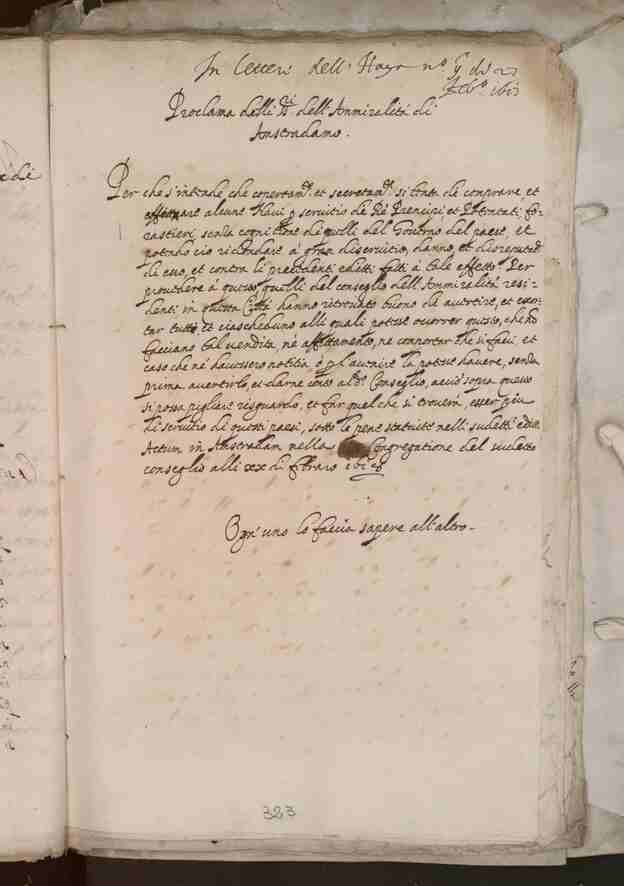 In lettere dell'Haya n.º di 27
Feb.º
Proclama delli SS.ri dell'Anmiralità di
Anstradamo.
Per che s'intende, che copertam.te et secretam.te si tratta di comprare, et
affittare alcune Navi per servitio de Rè Prencipi, et Potentati, fo-
rastieri senza cognitione di quelli del Governo del paese, et
potendo ciò ridondare à gran diservitio, danno, et disreputat.e
di esso, et contra li precedenti editti fatti à tale effetto. Per
provedere à questo quelli del conseglio dell'Anmiralità resi-
denti in questa Città hanno ritrovato buono di avertire, et essor-
tar tutti et ciascheduno alli quali potesse occorrer questo, che no
facciano tal vendita, né affittamento, ne comportar che si facci, et
caso che né havessero notitia, ò per l'avenire la potesse havere, senza
prima avertirlo, et darne conto al d.º Conseglio, acciò sopra questo
si possa pigliare risguardo, et far quel che si troverà esser più
di servitio di questi paesi, sotto le pene statuite nelli sudetti editti
Actum in Anstradam nella Congregatione del sudetto
conseglio alli xx di febraro
Ogn'uno lo faccia sapere all'altro.
323